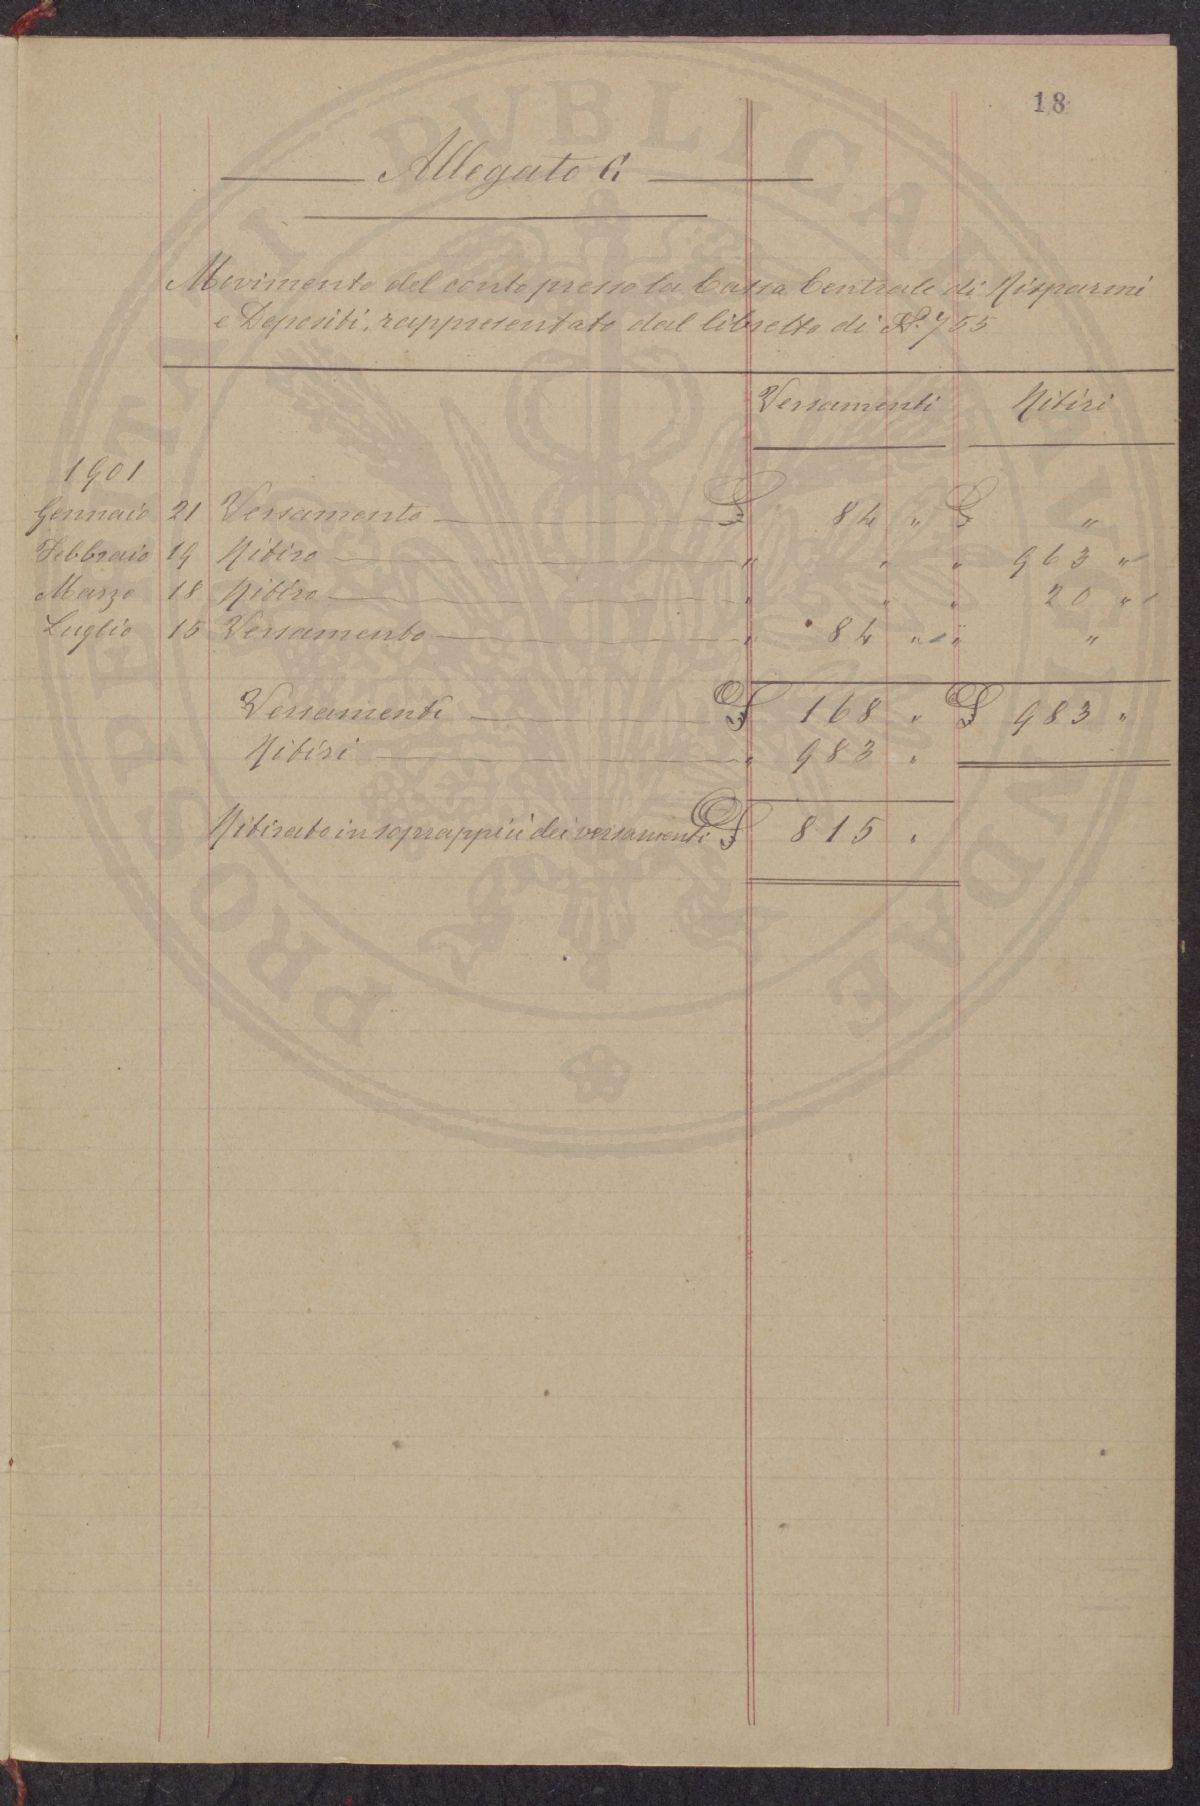 18
Allegato G
Movimento del conto presso la Cassa Centrale di Risparmi
e Depositi, rappresentato dal libretto di N.° 755
Versamenti Ritiri
1901
Gennaio 21 Versamento £ 84 " £ "
Febbraio 19 Ritiro " " " 963 "
Marzo 18 Ritiro " " " 20 "
Luglio 15 Versamento " 84 " " "
Versamenti £ 168 " £ 983 "
Ritiri " 983 "
Ritirato in soprappiù dei versamenti £ 815 "
PROSPERITATI PVBLICAE AVGENDAE